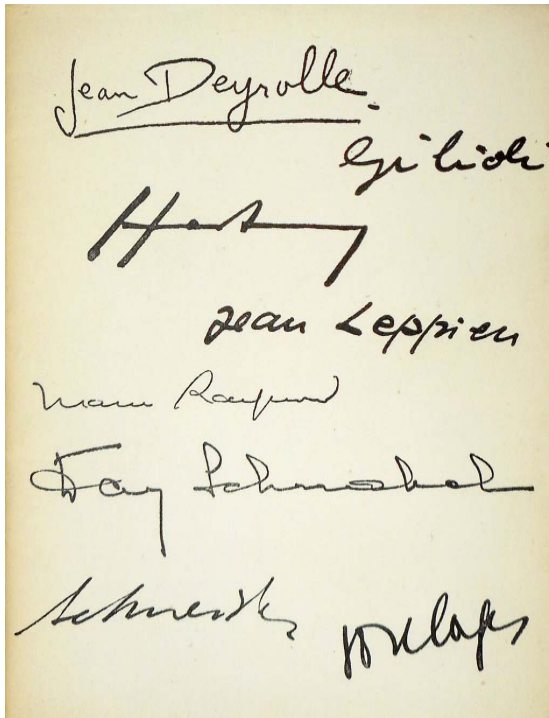 Jean Deyrolle
Gilioli
Hartung
Jean Leppien
Marie Raymond
Day Schnabel
Schneider
Soulages